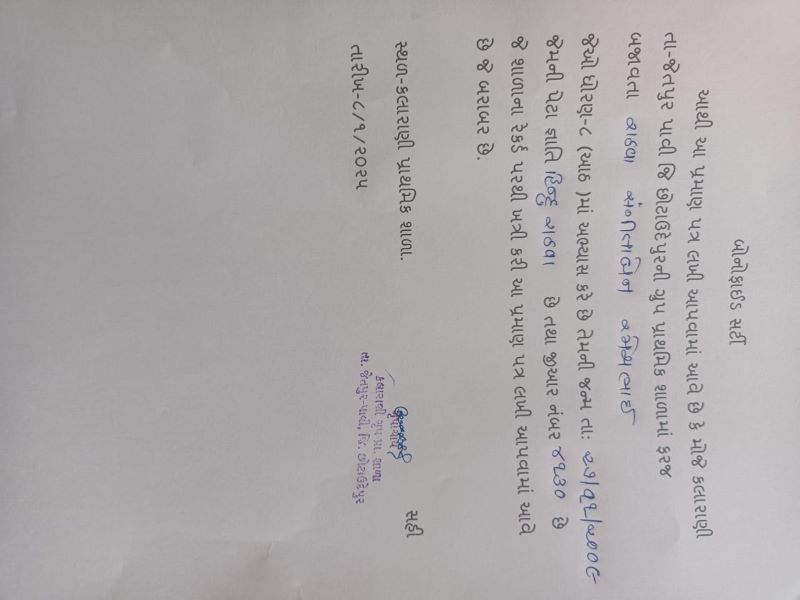 બોનોફાઈડ સર્ટી
આથી આ પ્રમાણ પત્ર લખી આપવામાં આવે છે કે મોજે કલારાણી
તા-જેતપુર પાવી જિ છોટાઉદેપુરની ગ્રુપ પ્રાથમિક શાળામાં ફરજ
બજાવતા રાઠવા સંગીતાબેન
જેઓ ધોરણ-૮ (આઠ )માં અભ્યાસ કરે છે તેમની જન્મ તા: ૨૭/૧૨/૨૦૦૯
જેમની પેટા જ્ઞાતિ હિન્દુ રાઠવા છે તથા જીઆર નંબર ૪૧૩૦ છે
જે શાળાના રેકર્ડ પરથી ખત્રી કરી આ પ્રમાણ પત્ર લખી આપવામાં આવે
છે જે બરાબર છે.
સ્થળ-કલારાણી પ્રાથમિક શાળા. સહી
તારીખ-૮/૧/૨૦૨૫
આચાર્ય
કલારાણી ગ્રુપ પ્રા. શાળા
તા. જેતપુર-પાવી, જિ. છોટાઉદેપુર